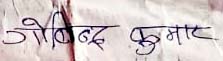 गोबिन्द कुमार